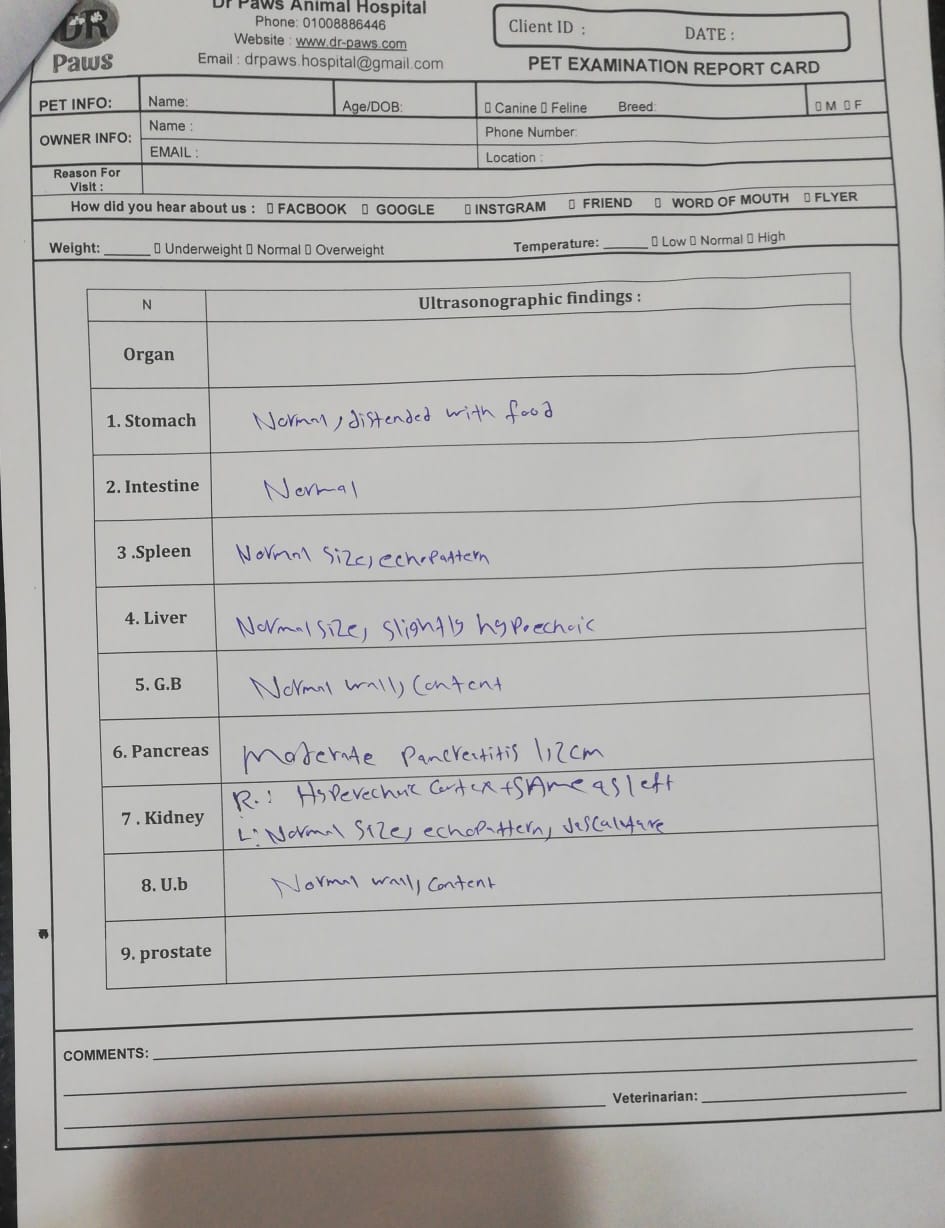 DR
Paws
Dr Paws Animal Hospital
Phone: 01008886446
Website : www.dr-paws.com
Email : drpaws.hospital@gmail.com
Client ID : DATE :
PET EXAMINATION REPORT CARD
PET INFO: Name: Age/DOB: ▯ Canine ▯ Feline Breed: ▯ M ▯ F
OWNER INFO: Name : Phone Number:
EMAIL : Location :
Reason For
Visit :
How did you hear about us : ▯ FACBOOK ▯ GOOGLE ▯ INSTGRAM ▯ FRIEND ▯ WORD OF MOUTH ▯ FLYER
Weight: ______ ▯ Underweight ▯ Normal ▯ Overweight Temperature: ______ ▯ Low ▯ Normal ▯ High
N Ultrasonographic findings :
Organ
1. Stomach Normal, distended with food
2. Intestine Normal
3 .Spleen Normal Size, echopattern
4. Liver Normal size, slightly hypoechoic
5. G.B Normal wall, content
6. Pancreas Moderate Pancreatitis 1,2cm
7 . Kidney R.: Hyperechoic Cortex + SAme as left
L: Normal Size, echopattern, vascular
8. U.b Normal wall, content
9. prostate
COMMENTS:
Veterinarian: